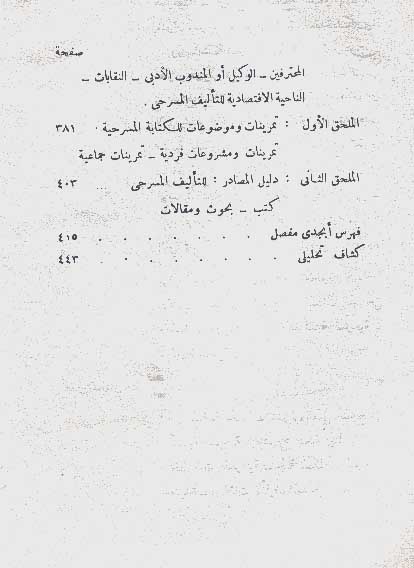 صفحة
المحترفين ــ الوكيل أو المندوب الأدبى ــ النقابات ــ
الناحية الاقتصادية للتأليف المسرحى .
الملحق الأول : تمرينات وموضوعات للكتابة المسرحية . ٣٨١
تمرينات ومشروعات فردية ــ تمرينات جماعية
الملحق الثانى : دليل المصادر : للتأليف المسرحى ... ٤٠٣
كتب ــ بحوث ومقالات
فهرس أبجدى مفصل . . . . . . . ٤١٥
كشاف تحليلى . . . . . . . . ٤٤٣